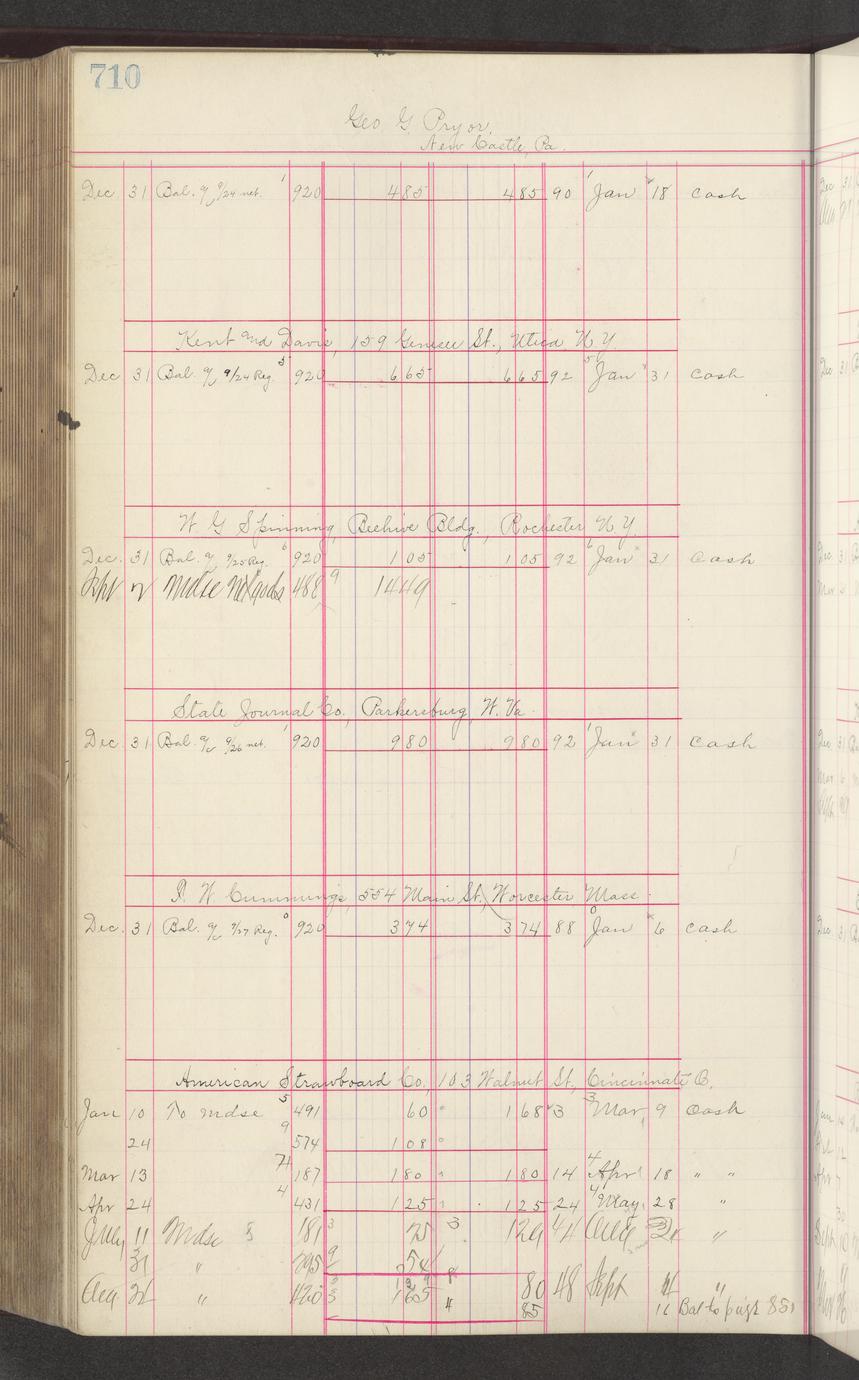 710
Geo G. Pryor,
New Castle, Pa.
Dec 31 Bal. 9/24 net. 1 920 485 485 90 1 Jan 18 Cash
Kent and Davis, 159 Genesee St., Utica N. Y.
Dec 31 Bal. 9/24 Reg. 5 920 665 665 92 Jan 31 Cash
W G Spinning, Beehive Bldg., Rochester N. Y.
Dec. 31 Bal. 9/25 Reg. 6 920 105 105 92 Jan 31 Cash
Mdse 488 9 1449
State Journal Co., Parkersburg, W. Va.
Dec 31 Bal. 9/26 net. 1 920 980 980 92 1 Jan 31 Cash
W Cummings, 554 Main St., Worcester Mass.
Dec. 31 Bal. 9/27 Reg. 920 374 374 88 Jan 6 Cash
American Strawboard Co., 103 Walnut St., Cincinnati O.
Jan 10 To Mdse 5 491 60 168 3 3 Mar, 9 Cash
24 9 574 108
Mar 13 187 180 180 14 4 Apr 18 " "
Apr 24 4 431 125 125 24 4 May, 28 "
July 11 Mdse 8 181 3 75 3 129 44 Aug "
31 " 295 9 54
Aug " 420 165 80 48 Sept "
4 85 16 Bal to